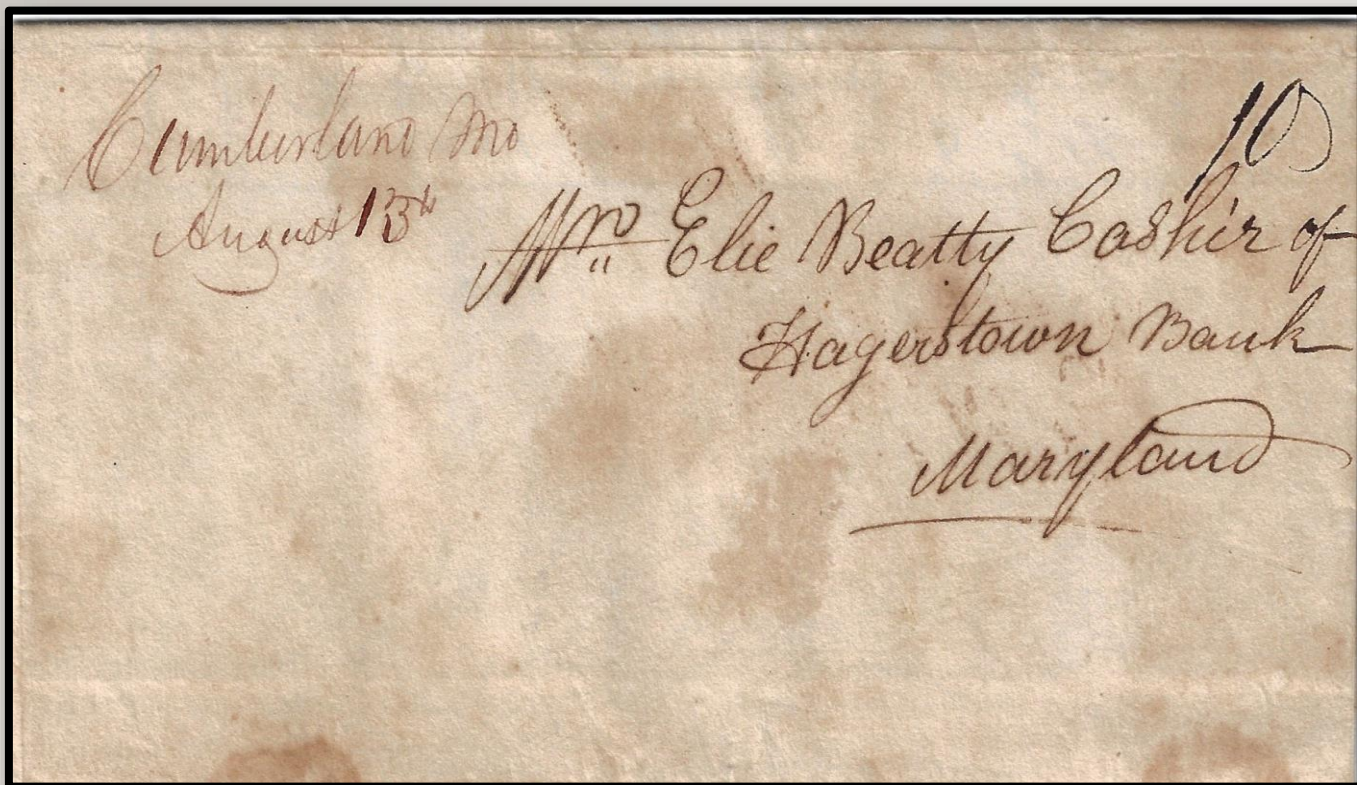 Cumberland Md
August 13th
10
Mr. Elie Beatty Cashier of
Hagerstown Bank
Maryland